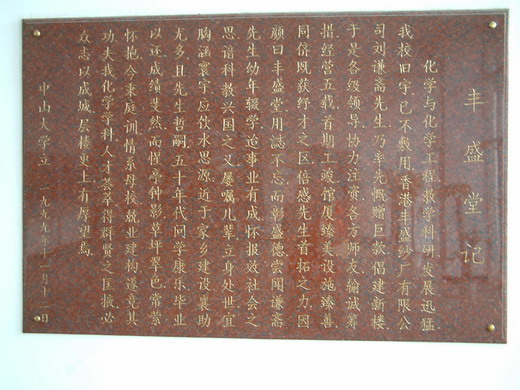 丰盛堂记
化学与化学工程教学科研发展迅猛
我校旧宇已不敷用香港丰盛纱厂有限公
司刘谦斋先生乃率先慨赠巨款倡建新楼
于是各级领导协力注资各方师友输诚筹
措经营五载首期工竣馆厦臻美设施臻善
同侪既获纾才之区倍感先生首拓之力因
颜曰丰盛堂用誌不忘而彰盛德尝闻谦斋
先生幼年辍学造事业有成怀报效社会之
思谙科教兴国之义屡嘱儿辈立身处世宜
胸涵寰宇应饮水思源近于家乡建设襄助
尤多且先生哲嗣五十年代问学康乐毕业
以还成绩斐然而惺亭钟影草坪翠色常萦
怀抱今秉庭训情系母校就业建构遂竟其
功夫我化学学科人才荟萃得群贤之匡掖必
众志以成城层楼更上有厚望焉
中山大学立 一九九九年十二月十二日